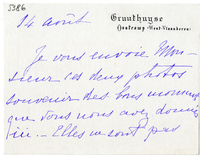 5386
14 août
Gruuthuyse
Oostcamp (West-Vlaanderen)
Je vous envoie Mon-
sieur ces deux photos
souvenir des bons moments
que vous nous avez donnés
ici — Elles ne sont pas